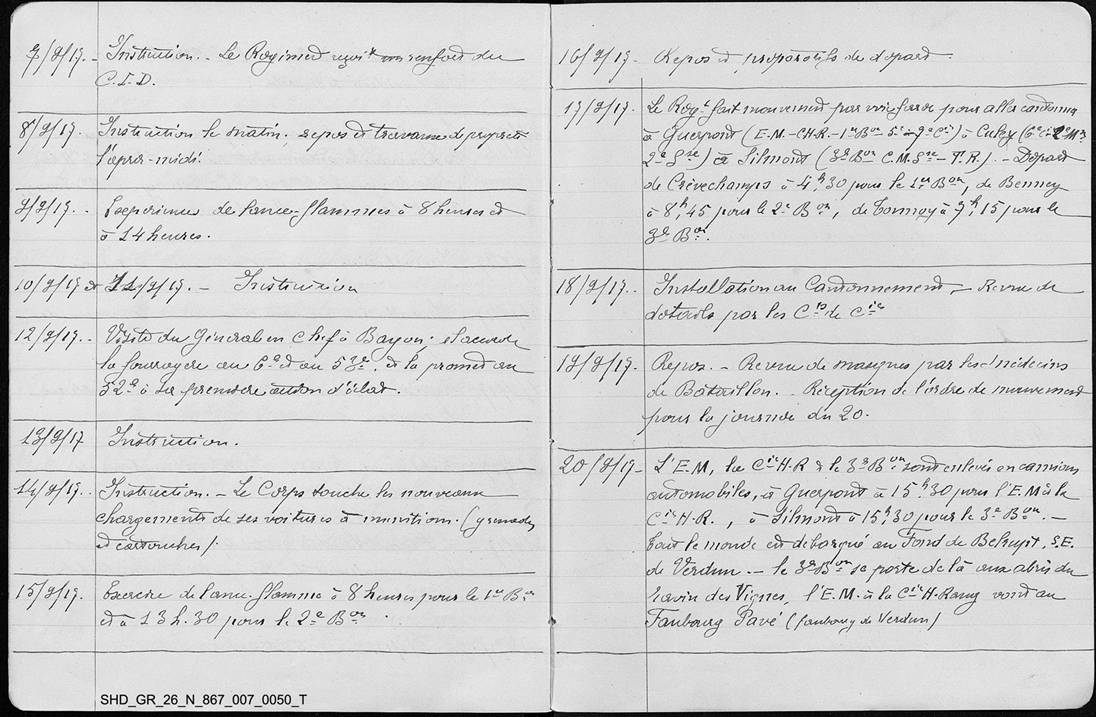 7/9/17. - Instruction. - Le Régiment reçoit un renfort du
C.I.D.
8/9/17. Instruction le matin, repos et travaux de propreté
l'après-midi.
9/9/17. - Expérience de lance-flammes à 8 heures et
à 14 heures.
10/9/17 et 11/9/17. - Instruction
12/9/17. - Visite du Général en Chef à Bayon; il accorde
la fourragère au 6e et au 53e, et la promet au
32e à sa première action d'éclat.
13/9/17 Instruction.
14/9/17. - Instruction. - Le Corps touche les nouveaux
chargements de ses voitures à munitions. (grenades
et cartouches).
15/9/17. Exercice de lance-flamme à 8 heures pour le 1er Bon
et à 13h.30 pour le 2e Bon.
16/9/17. Repos et préparatifs de départ.
17/9/17. Le Régt fait mouvement par voie ferrée pour aller cantonner
à Guerpont (E.M.-C.H.R.-1er Bon 5e-7e Cie) à Culey (6e Cie 2e M.
2e Sre) à Silmont (3e Bon C.M. Sre - T.R.). - Départ
de Crévechamps à 4h,30 pour le 1er Bon, de Benney
à 8h,45 pour le 2e Bon, de Tonnoy à 7h,15 pour le
3e Bon.
18/9/17. - Installation au Cantonnement. - Revue de
détails par les Cts de Cie
19/9/17. Repos. - Revue de masques par les médecins
de Bataillon. - Réception de l'ordre de mouvement
pour la journée du 20.
20/9/17 - L'E.M, la Cie H-R & le 3e Bon sont enlevés en camions
automobiles, à Guerpont à 15h30 pour l'E.M & la
Cie H-R., à Silmont à 15h,30 pour le 3e Bon. -
Tout le monde est débarqué au Fond de Belrupt, S.E.
de Verdun. - le 3e Bon se porte de là aux abris du
Ravin des Vignes, l'E.M. & la Cie H-Rang vont au
Faubourg Pavé (faubourg de Verdun)
SHD_GR_26_N_867_007_0050_T